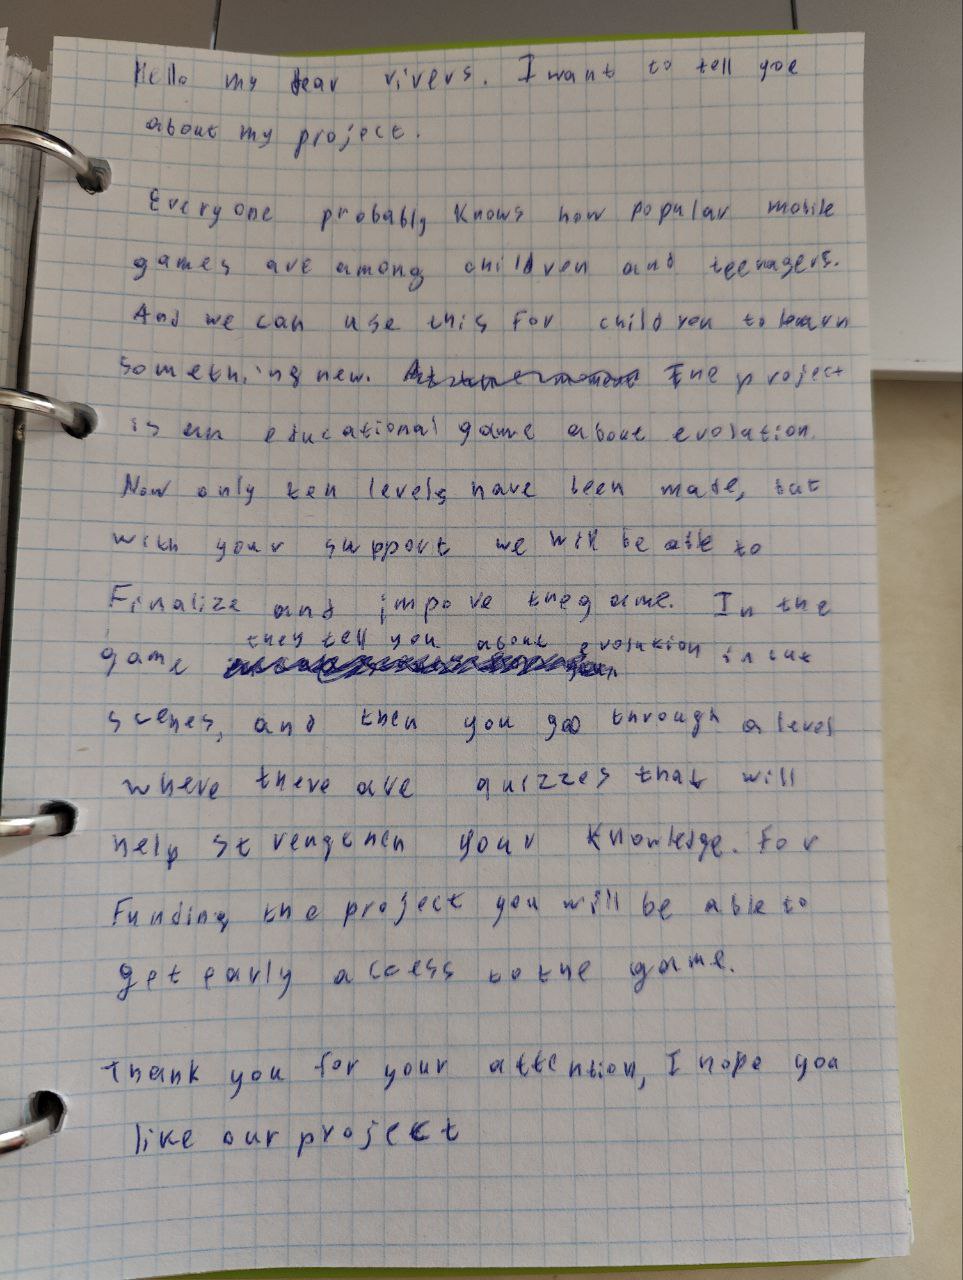 Hello my dear rivers. I want to tell you
about my project.
Everyone probably knows how popular mobile
games are among children and teenagers.
And we can use this for children to learn
something new. The project
is an educational game about evolution.
Now only ten levels have been made, but
with your support we will be able to
Finalize and impove the game. In the
they tell you about evolution in cut
game
scenes, and then you go through a level
where there are quizzes that will
help strengehen your knowledge. For
Funding the project you will be able to
get early access to the game.
Thank you for your attention, I hope you
like our project